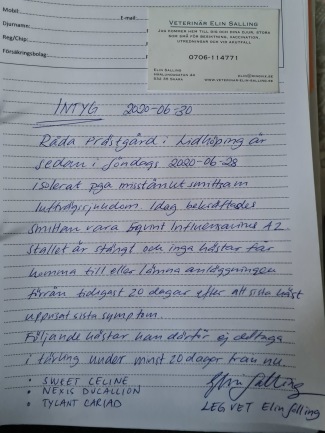 Mobil:
E-mail:
Djurnamn:
Reg/Chip:
Försäkringsbolag:
VETERINÄR ELIN SALLING
JAG KOMMER HEM TILL DIG OCH DINA DJUR, STORA
SOM SMÅ FÖR BESIKTNING, VACCINATION,
UTREDNINGAR OCH VID AKUTFALL
0706-114771
ELIN SALLING
532 SKARA
WWW.VETERINAR-ELIN-SALLING.SE
INTYG 2020-06-30
Råda Prästgård i Lidköping är
sedan i söndags 2020-06-28
isolerat pga misstänkt smittsam
luftvägssjukdom. Idag bekräftades
smittan vara Equint Influensavirus A2.
Stallet är stängt och inga hästar får
komma till eller lämna anläggningen
förrän tidigast 20 dagar efter att sista häst
uppvisat sista symptom.
Följande hästar kan därför ej deltaga
i tävling under minst 20 dagar från nu.
• SWEET CELINE
• NEXIS DUCALLION
• TYLANT CARIAD
Elin Salling
LEG VET Elin Salling